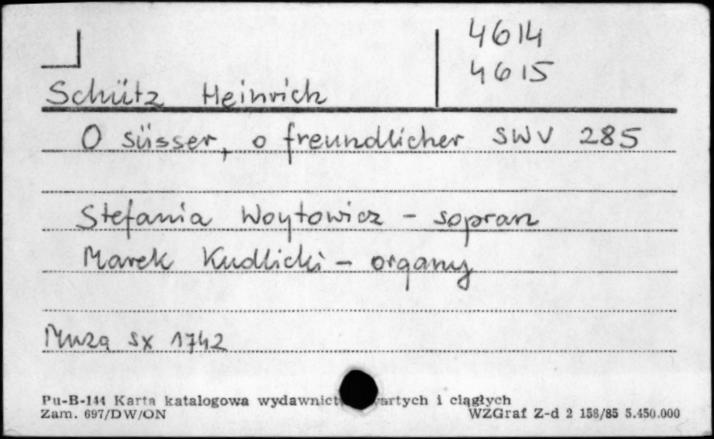 4614
4615
Schütz Heinrich
O süsser, o freundlicher SWV 285
Stefania Woytowicz - sopran
Marek Kudlicki - organy
Muza SX 1742
Pu-B-144 Karta katalogowa wydawnict wartych i ciągłych
Zam. 697/DW/ON WZGraf Z-d 2 158/85 5.450.000